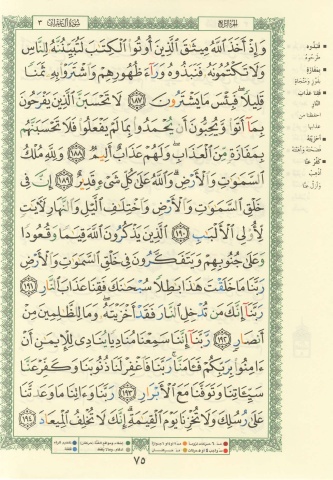 الجزء الرابع
سورة آل عمران ٣
وَإِذْ أَخَذَ اللَّهُ مِيثَاقَ الَّذِينَ أُوتُوا الْكِتَابَ لَتُبَيِّنُنَّهُ لِلنَّاسِ
وَلَا تَكْتُمُونَهُ فَنَبَذُوهُ وَرَاءَ ظُهُورِهِمْ وَاشْتَرَوْا بِهِ ثَمَنًا
قَلِيلًا فَبِئْسَ مَا يَشْتَرُونَ ١٨٧ لَا تَحْسَبَنَّ الَّذِينَ يَفْرَحُونَ
بِمَا أَتَوا وَّيُحِبُّونَ أَن يُحْمَدُوا بِمَا لَمْ يَفْعَلُوا فَلَا تَحْسَبَنَّهُم
بِمَفَازَةٍ مِّنَ الْعَذَابِ وَلَهُمْ عَذَابٌ أَلِيمٌ ١٨٨ وَلِلَّهِ مُلْكُ
السَّمَاوَاتِ وَالْأَرْضِ وَاللَّهُ عَلَىٰ كُلِّ شَيْءٍ قَدِيرٌ ١٨٩ إِنَّ فِي
خَلْقِ السَّمَاوَاتِ وَالْأَرْضِ وَاخْتِلَافِ اللَّيْلِ وَالنَّهَارِ لَآيَاتٍ
لِّأُولِي الْأَلْبَابِ ١٩٠ الَّذِينَ يَذْكُرُونَ اللَّهَ قِيَامًا وَقُعُودًا
وَعَلَىٰ جُنُوبِهِمْ وَيَتَفَكَّرُونَ فِي خَلْقِ السَّمَاوَاتِ وَالْأَرْضِ
رَبَّنَا مَا خَلَقْتَ هَٰذَا بَاطِلًا سُبْحَانَكَ فَقِنَا عَذَابَ النَّارِ ١٩١
رَبَّنَا إِنَّكَ مَن تُدْخِلِ النَّارَ فَقَدْ أَخْزَيْتَهُ وَمَا لِلظَّالِمِينَ مِنْ
أَنصَارٍ ١٩٢ رَّبَّنَا إِنَّنَا سَمِعْنَا مُنَادِيًا يُنَادِي لِلْإِيمَانِ أَنْ
آمِنُوا بِرَبِّكُمْ فَآمَنَّا رَبَّنَا فَاغْفِرْ لَنَا ذُنُوبَنَا وَكَفِّرْ عَنَّا
سَيِّئَاتِنَا وَتَوَفَّنَا مَعَ الْأَبْرَارِ ١٩٣ رَبَّنَا وَآتِنَا مَا وَعَدتَّنَا
عَلَىٰ رُسُلِكَ وَلَا تُخْزِنَا يَوْمَ الْقِيَامَةِ إِنَّكَ لَا تُخْلِفُ الْمِيعَادَ ١٩٤
فنبذوه
طرحوه
بمفازة
بفوز ومنجاة
فقنا عذاب
النار
احفظنا من
عذابها
أخزيته
فضحته وأهنته
كفر عنا
أذهب
وأزل عنا
٧٥